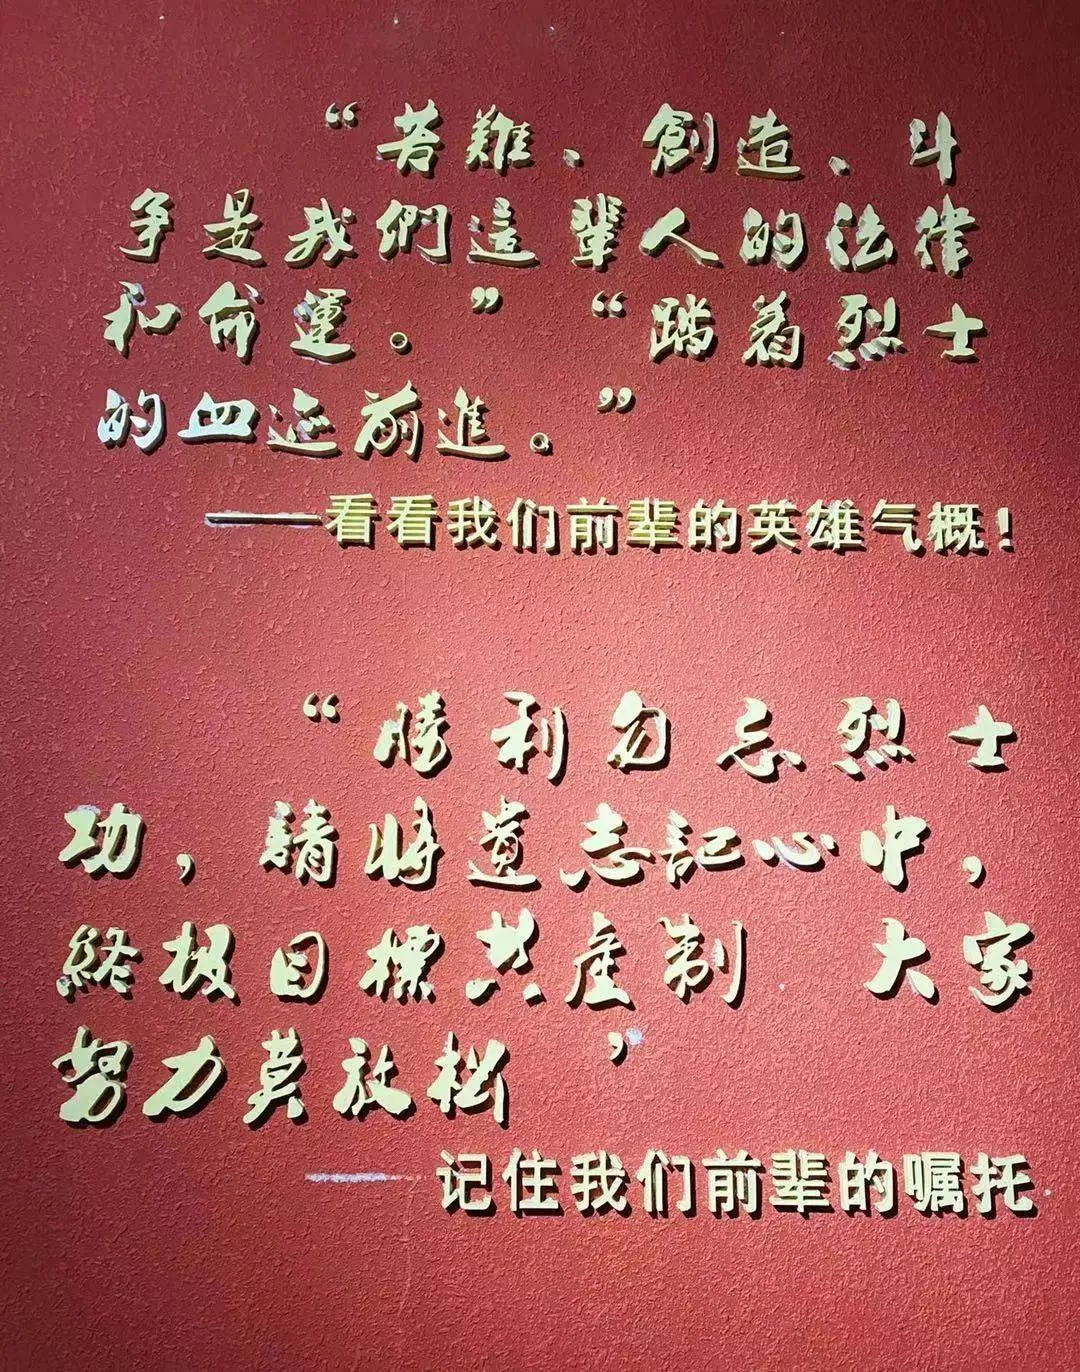 “苦難、創造、斗
争是我們這輩人的法律
和命運。”“踏着烈士
的血迹前進。”
——看看我们前辈的英雄气概！
“勝利勿忘烈士
功，請將遺志記心中，
終极目標共產制 大家
努力莫放松 ’
记住我们前辈的嘱托